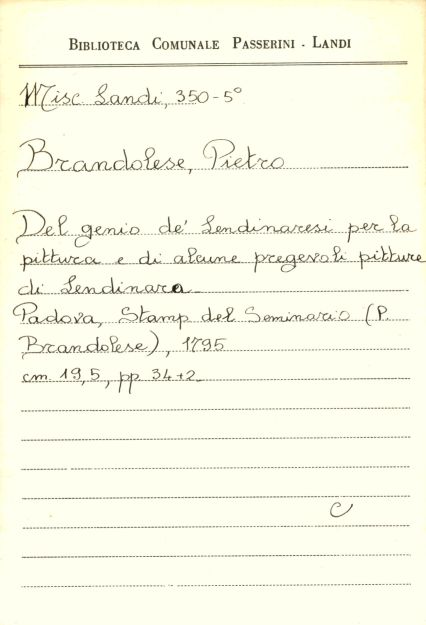 Biblioteca Comunale Passerini - Landi
Misc. Landi, 350-5°
Brandolese, Pietro
Del genio de' Lendinaresi per la
pittura e di alcune pregevoli pitture
di Lendinara
Padova, Stamp del Seminario (P.
Brandolese), 1795
cm. 19,5, pp. 34+2
C